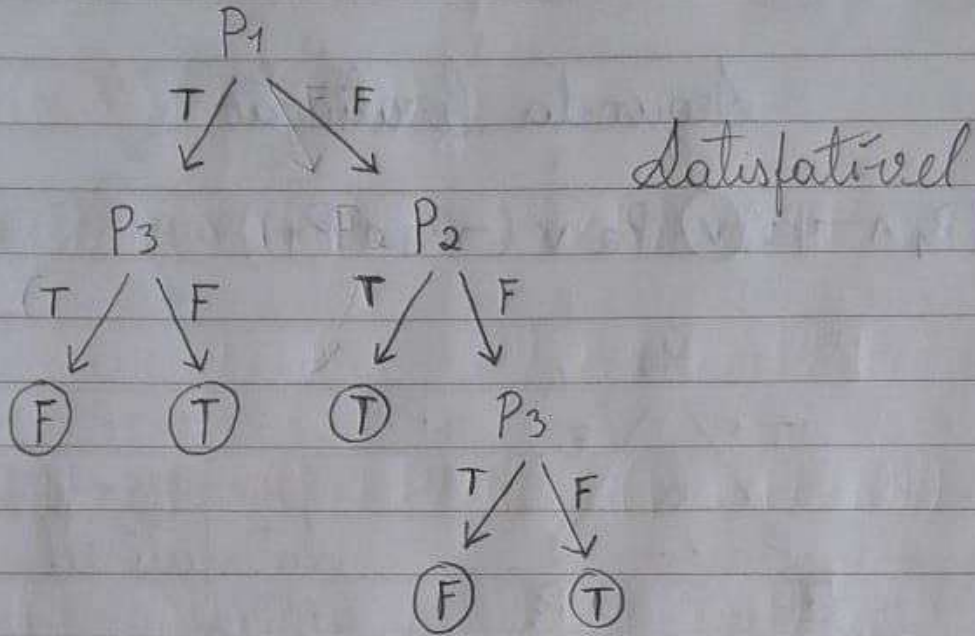 P1
T F
Satisfatível
P3 P2
T F T F
F T T P3
T F
F T